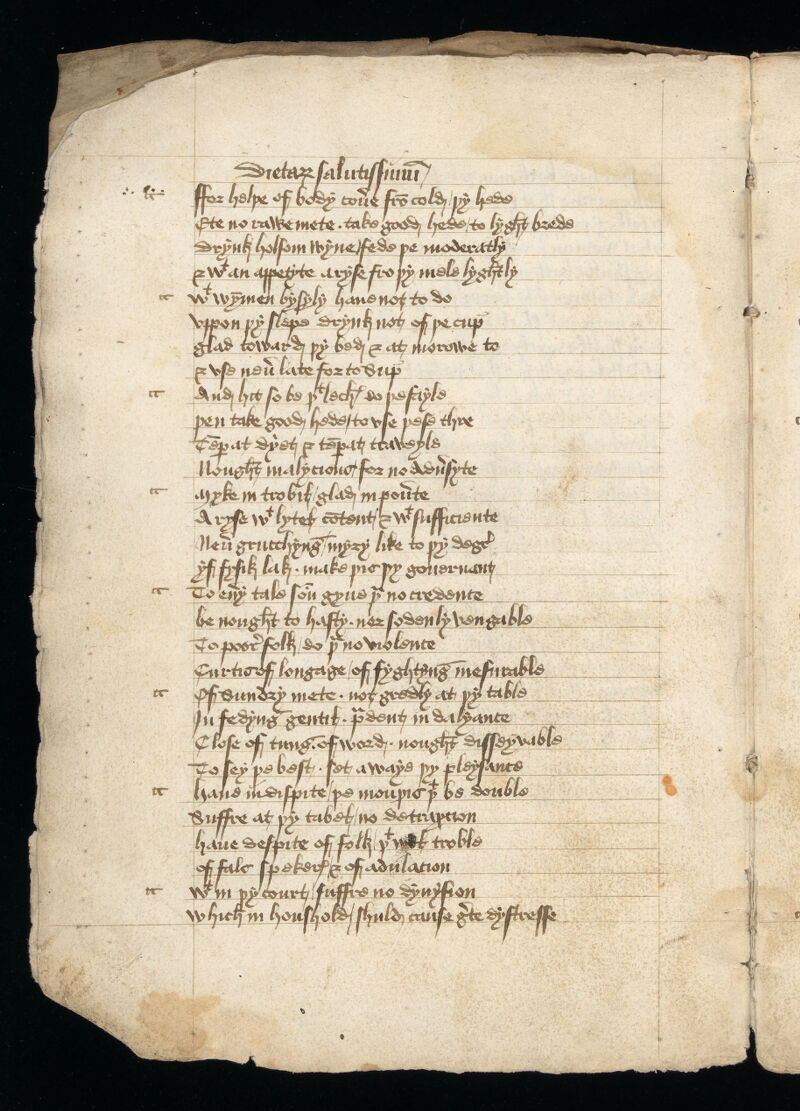 Dietar salutissimu
ffor helpe of body cov̄e fro cold þy hede
Ete no rawe mete · take good hede to lyght brede
Drynk holsom wyne / fede þe moderatly
& wt an appetyte aryse fro þy mele lyghtly
wt wymen bysyly haue not to do
vppon þy slepe drynk not of þe cup
glad toward þy bed & at morowe to
& vse nev̄ late for to sup
And hit so be þt lech do þe fayle
þen take good hede to vse þese thre
Tēpat dyet & tēpat traweyle
Nought malycious for no adūsyte
Myke in trobil / glad in pov̄te
Aryse wt lytel cōtent / & wt sufficiente
Nev̄ grucchyng / myry like to þy degre
yf fysik lak · make þis þy gouernant
To euy tale son gyue þu no credence
be nought to hasty · ner sodenly vengable
To poer folk / do þu no violence
Curtis of longage / of fyghtyng mesurable
Of sundry mete · not gredy at þy table
In fedyng gentil · prdent in dalyance
Close of tung · of word · nought disseyvable
To sey þe best · set awaye þy pleysance
haue in dispite þe mouþis þt be double
Suffre at þy tabel no detraxion
haue despite of folk / þt troble
of fals speker & of adulation
wt in þy court / suffre no dyuysion
which in houshold / shuld cause grte dystresse